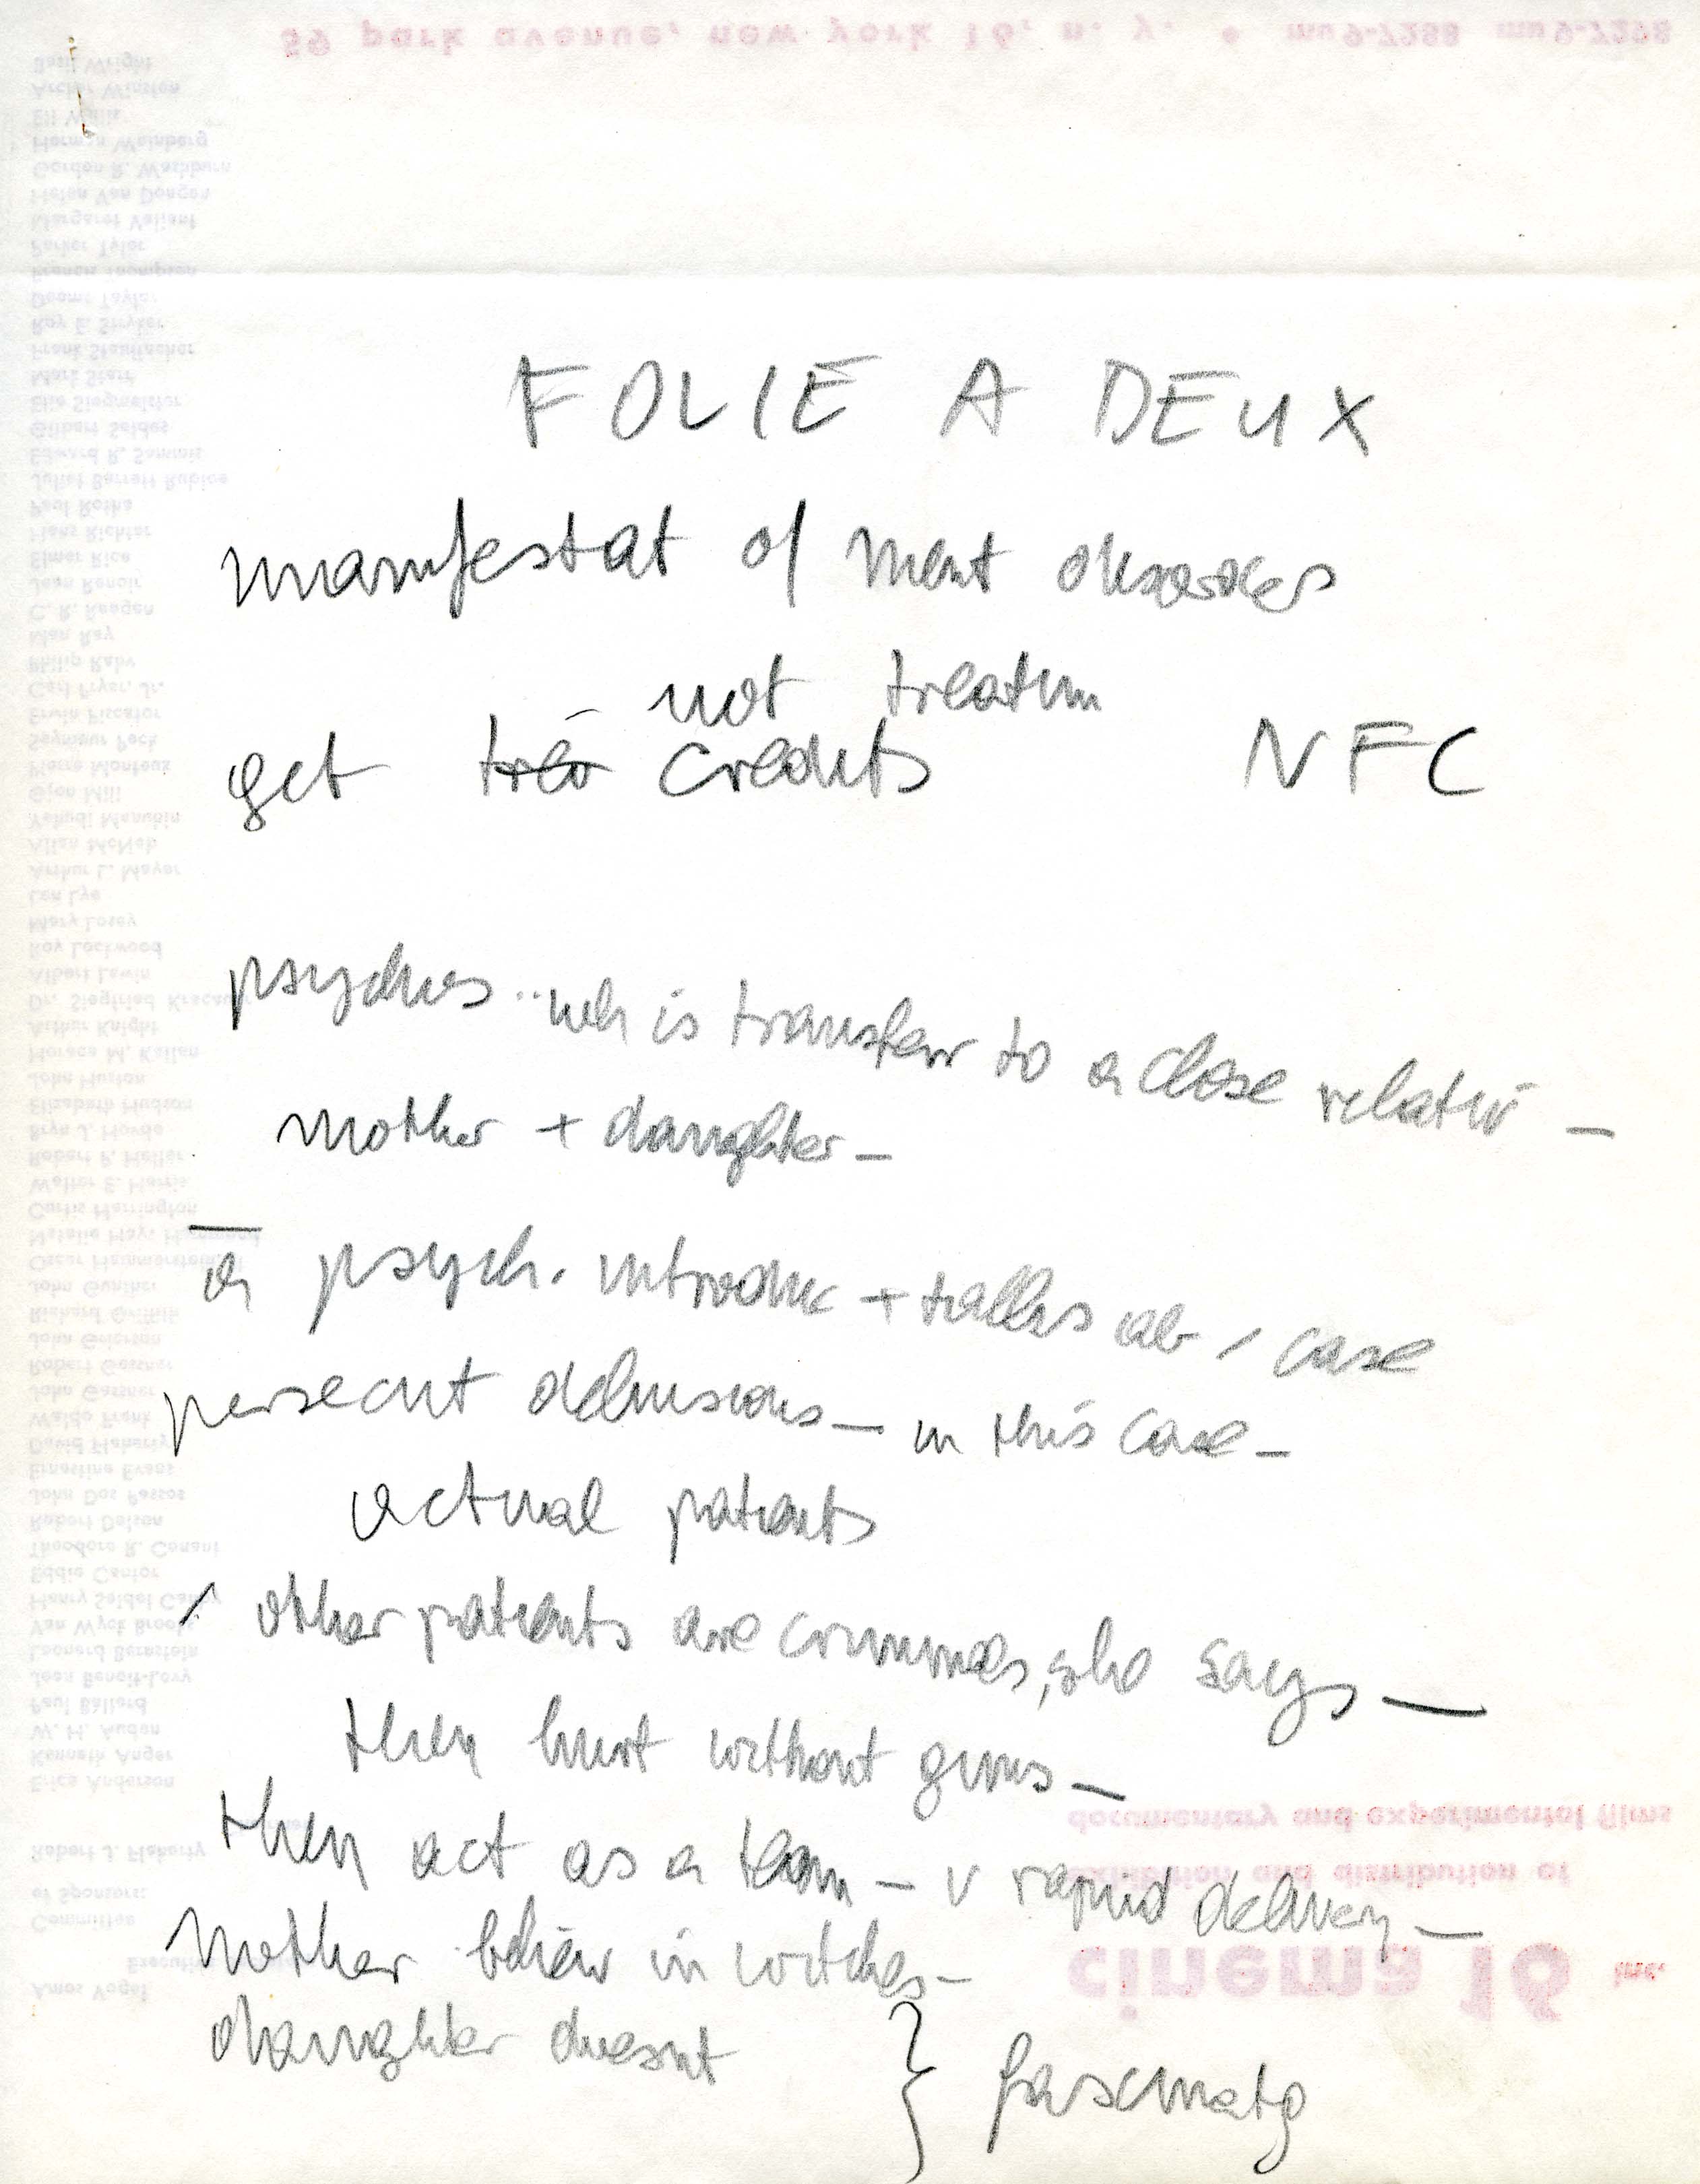 FOLIE A DEUX
manifestat of ment diseases
not treatm
get trea credits NFC
psychos .. wh is transferr to a close relativ –
mother + daughter –
a psych. introduc + talks ab / case
persecut delusions – in this case –
actual patients
/ other patients are criminals, she says –
they hurt without guns –
they act as a team – v rapid delivery –
Mother believ in witches –
daughter doesnt } fascinatg
59 park avenue, new york 16, n. y. • mu9-7288 mu9-7298
documentary and experimental films
exhibition and distribution of
cinema 16 inc.
Basil Wright
Archer Winsten
Herman Weinberg
Gordon R. Washburn
Helen Van Dongen
Margaret Valiant
Parker Tyler
Francis Thompson
Deems Taylor
Roy E. Stryker
Frank Stauffacher
Mark Starr
Elie Siegmeister
Gilbert Seldes
Edward R. Sammis
Juliet Barrett Rublee
Paul Rotha
Hans Richter
Elmer Rice
Jean Renoir
C. R. Reagan
Man Ray
Philip Rahv
Carl Pryer, Jr.
Erwin Piscator
Seymour Peck
Pierre Monteux
Gjon Mili
Yehudi Menuhin
Allan McNab
Arthur L. Mayer
Len Lye
Mary Losey
Roy Lockwood
Albert Lewin
Dr. Siegfried Kracauer
Arthur Knight
Horace M. Kallen
John Huston
Elizabeth Hudson
Bryn J. Hovde
Robert P. Heller
Walter E. Harris
Curtis Harrington
Natalie Hays Hammond
Oscar Hammerstein, II
John Gunther
Richard Griffith
John Grierson
Robert Gessner
John Gassner
Waldo Frank
David Flaherty
Ernestine Evans
John Dos Passos
Robert Delson
Theodore R. Conant
Eddie Cantor
Henry Seidel Canby
Van Wyck Brooks
Leonard Bernstein
Jean Benoit-Levy
Paul Ballard
W. H. Auden
Kenneth Anger
Erica Anderson
Robert J. Flaherty
of Sponsors:
Committee
Amos Vogel